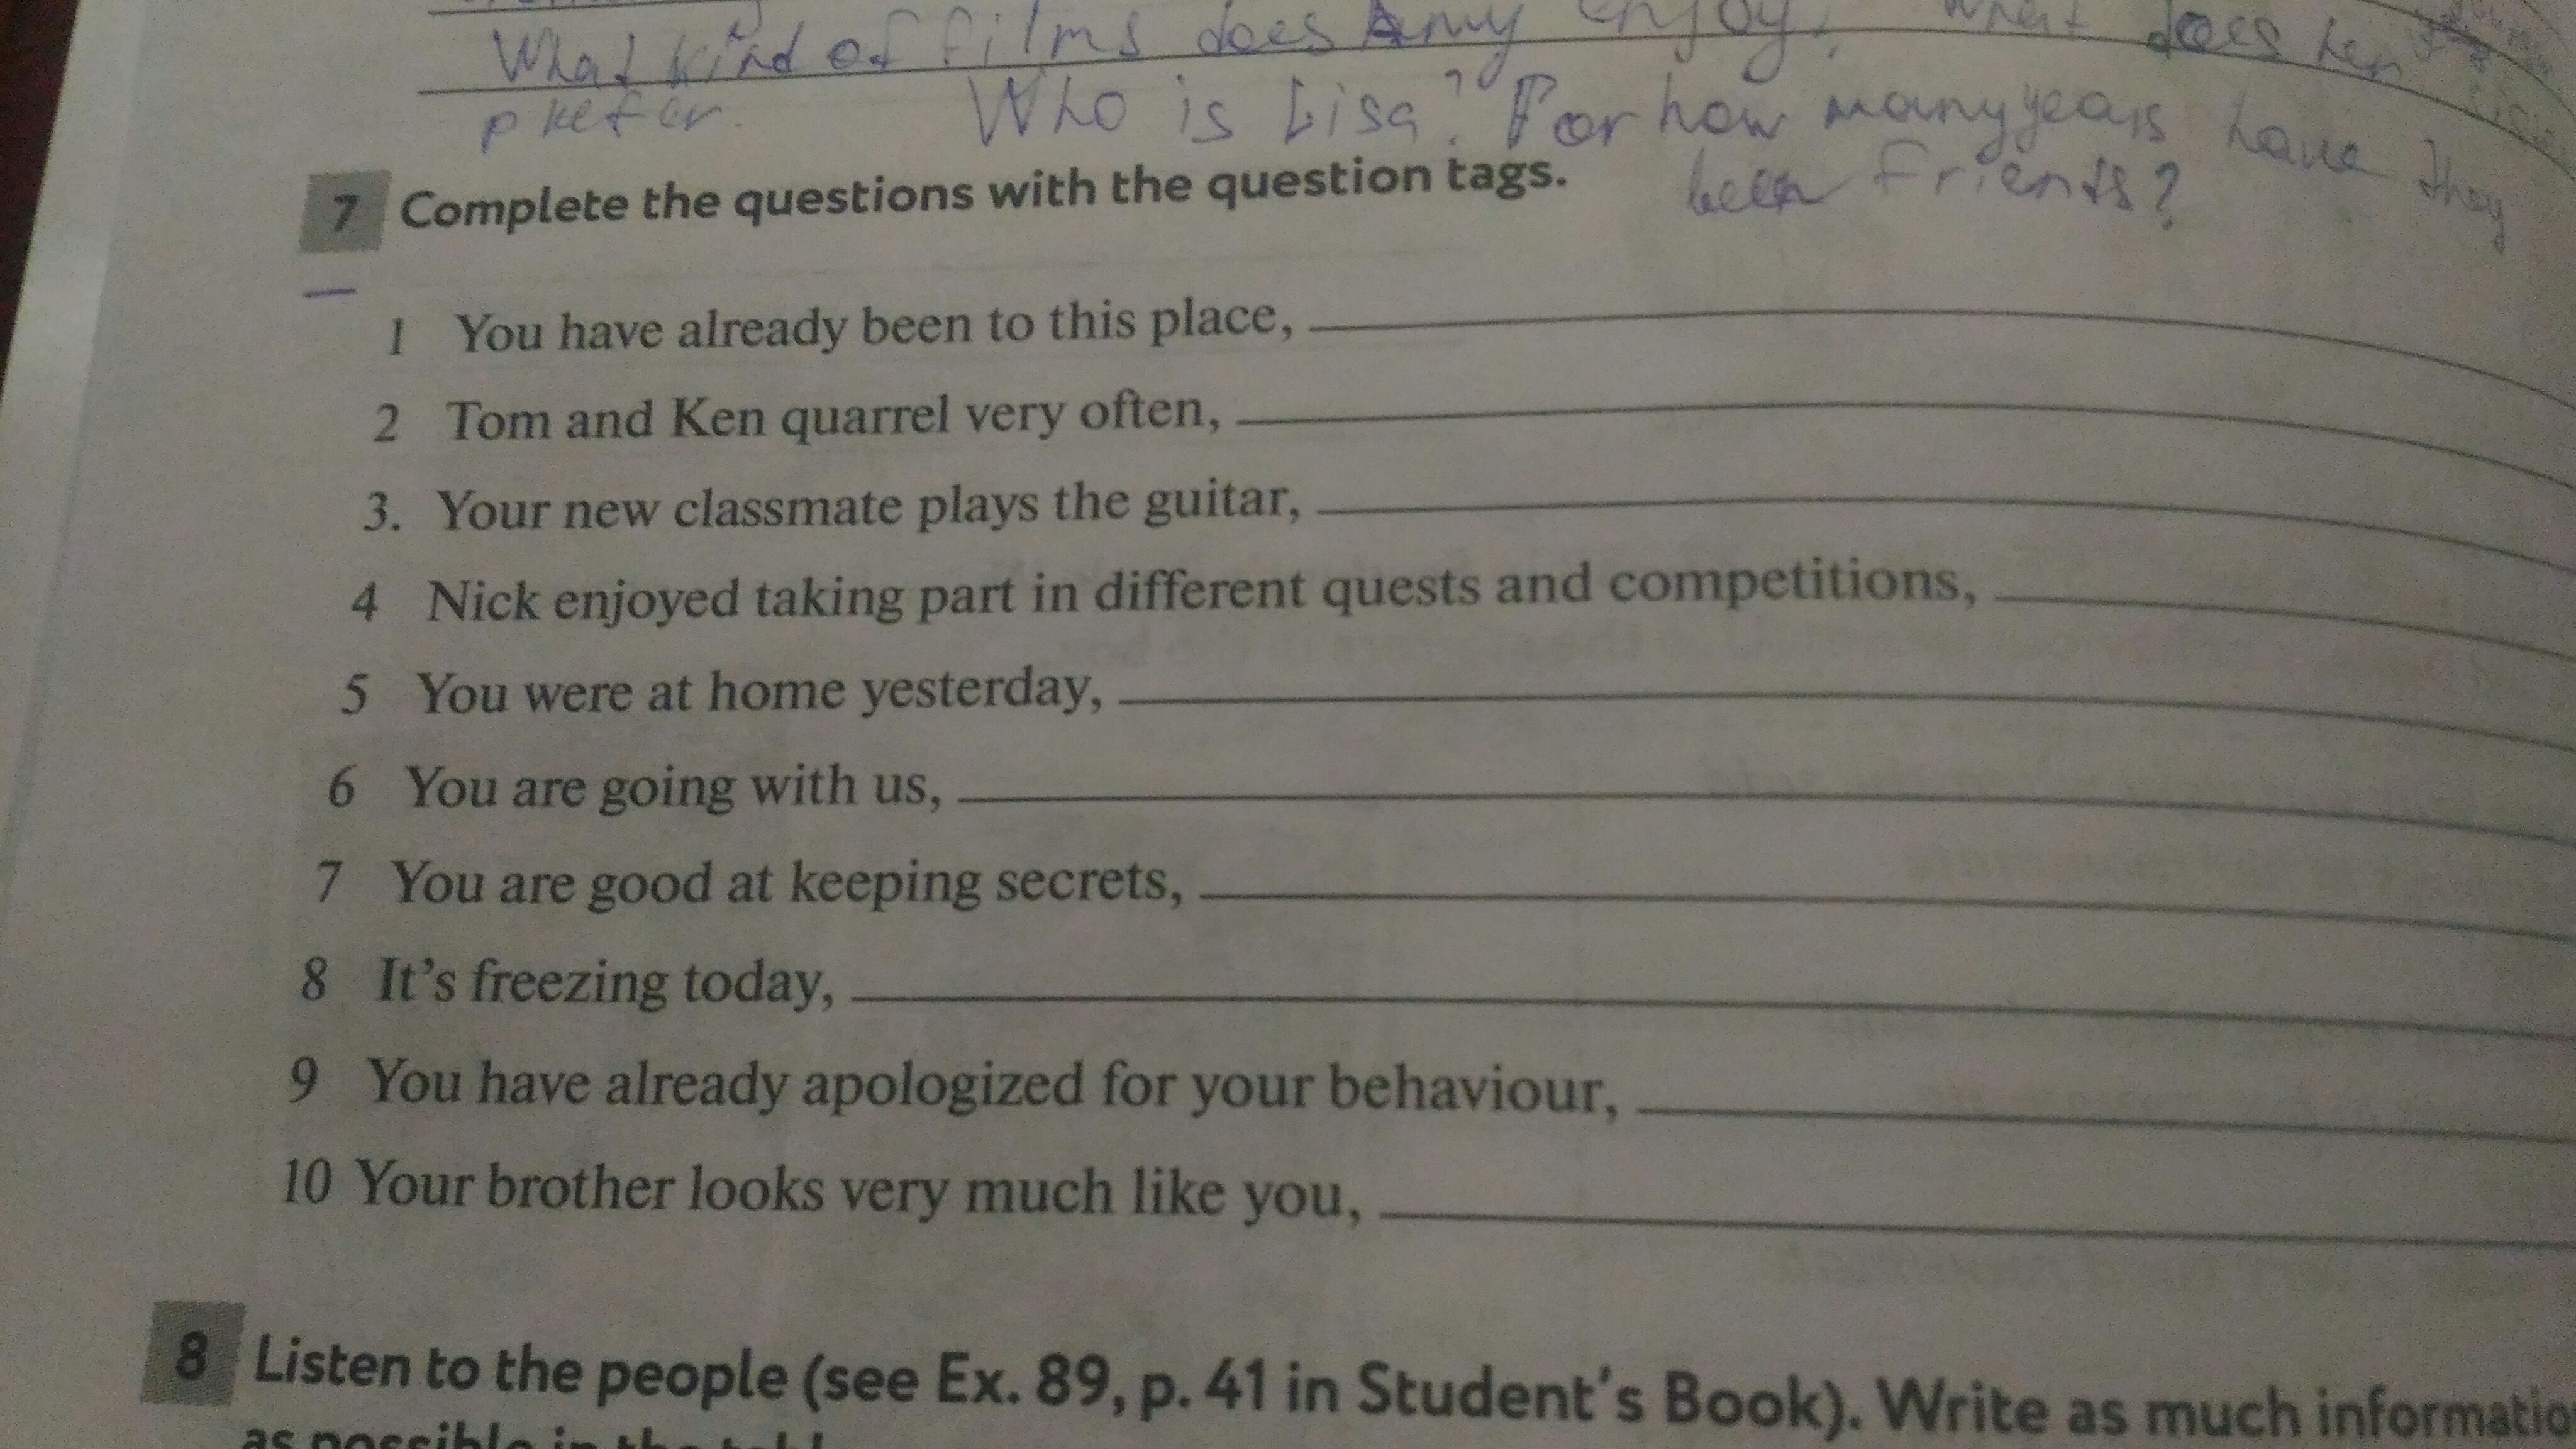 What kind of films does Amy enjoy, What does her
prefer. Who is Lisa? For how many years have they
been frients?
7 Complete the questions with the question tags.
1 You have already been to this place,
2 Tom and Ken quarrel very often,
3. Your new classmate plays the guitar,
4 Nick enjoyed taking part in different quests and competitions,
5 You were at home yesterday,
6 You are going with us,
7 You are good at keeping secrets,
8 It's freezing today,
9 You have already apologized for your behaviour,
10 Your brother looks very much like you,
8 Listen to the people (see Ex. 89, p. 41 in Student's Book). Write as much informatio
as possible in the